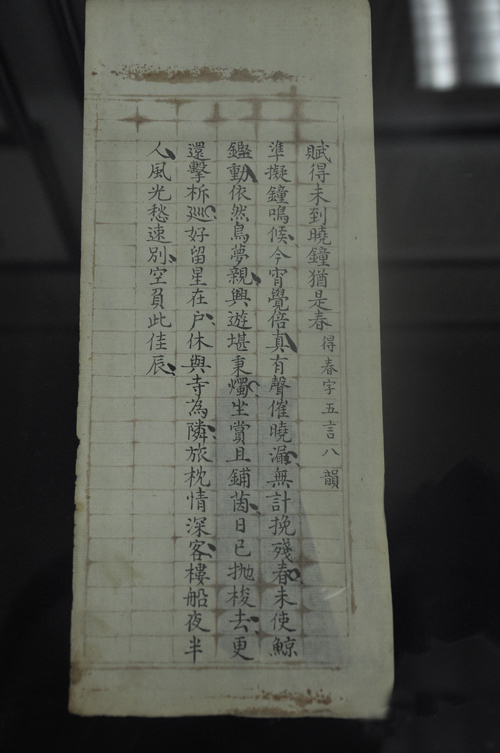 賦得未到曉鐘猶是春得春字五言八韻
準擬鐘鳴候今宵覺倍真有聲催曉漏無計挽殘春未使鯨
鏗動依然鳥夢親興遊堪秉燭坐賞且鋪茵日已拋梭去更
還擊柝巡好留星在户休與寺為隣旅枕情深客樓船夜半
人風光愁速別空負此佳辰